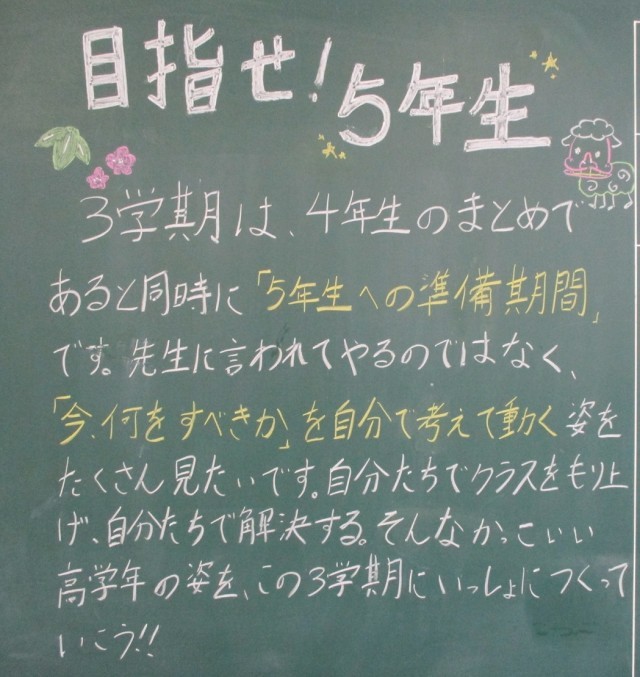 目指せ!5年生
3学期は、4年生のまとめで
あると同時に「5年生への準備期間」
です。先生に言われてやるのではなく、
「今、何をすべきか」を自分で考えて動く姿を
たくさん見たいです。自分たちでクラスをもり上
げ、自分たちで解決する。そんなかっこいい
高学年の姿を、この3学期にいっしょにつくって
いこう!!